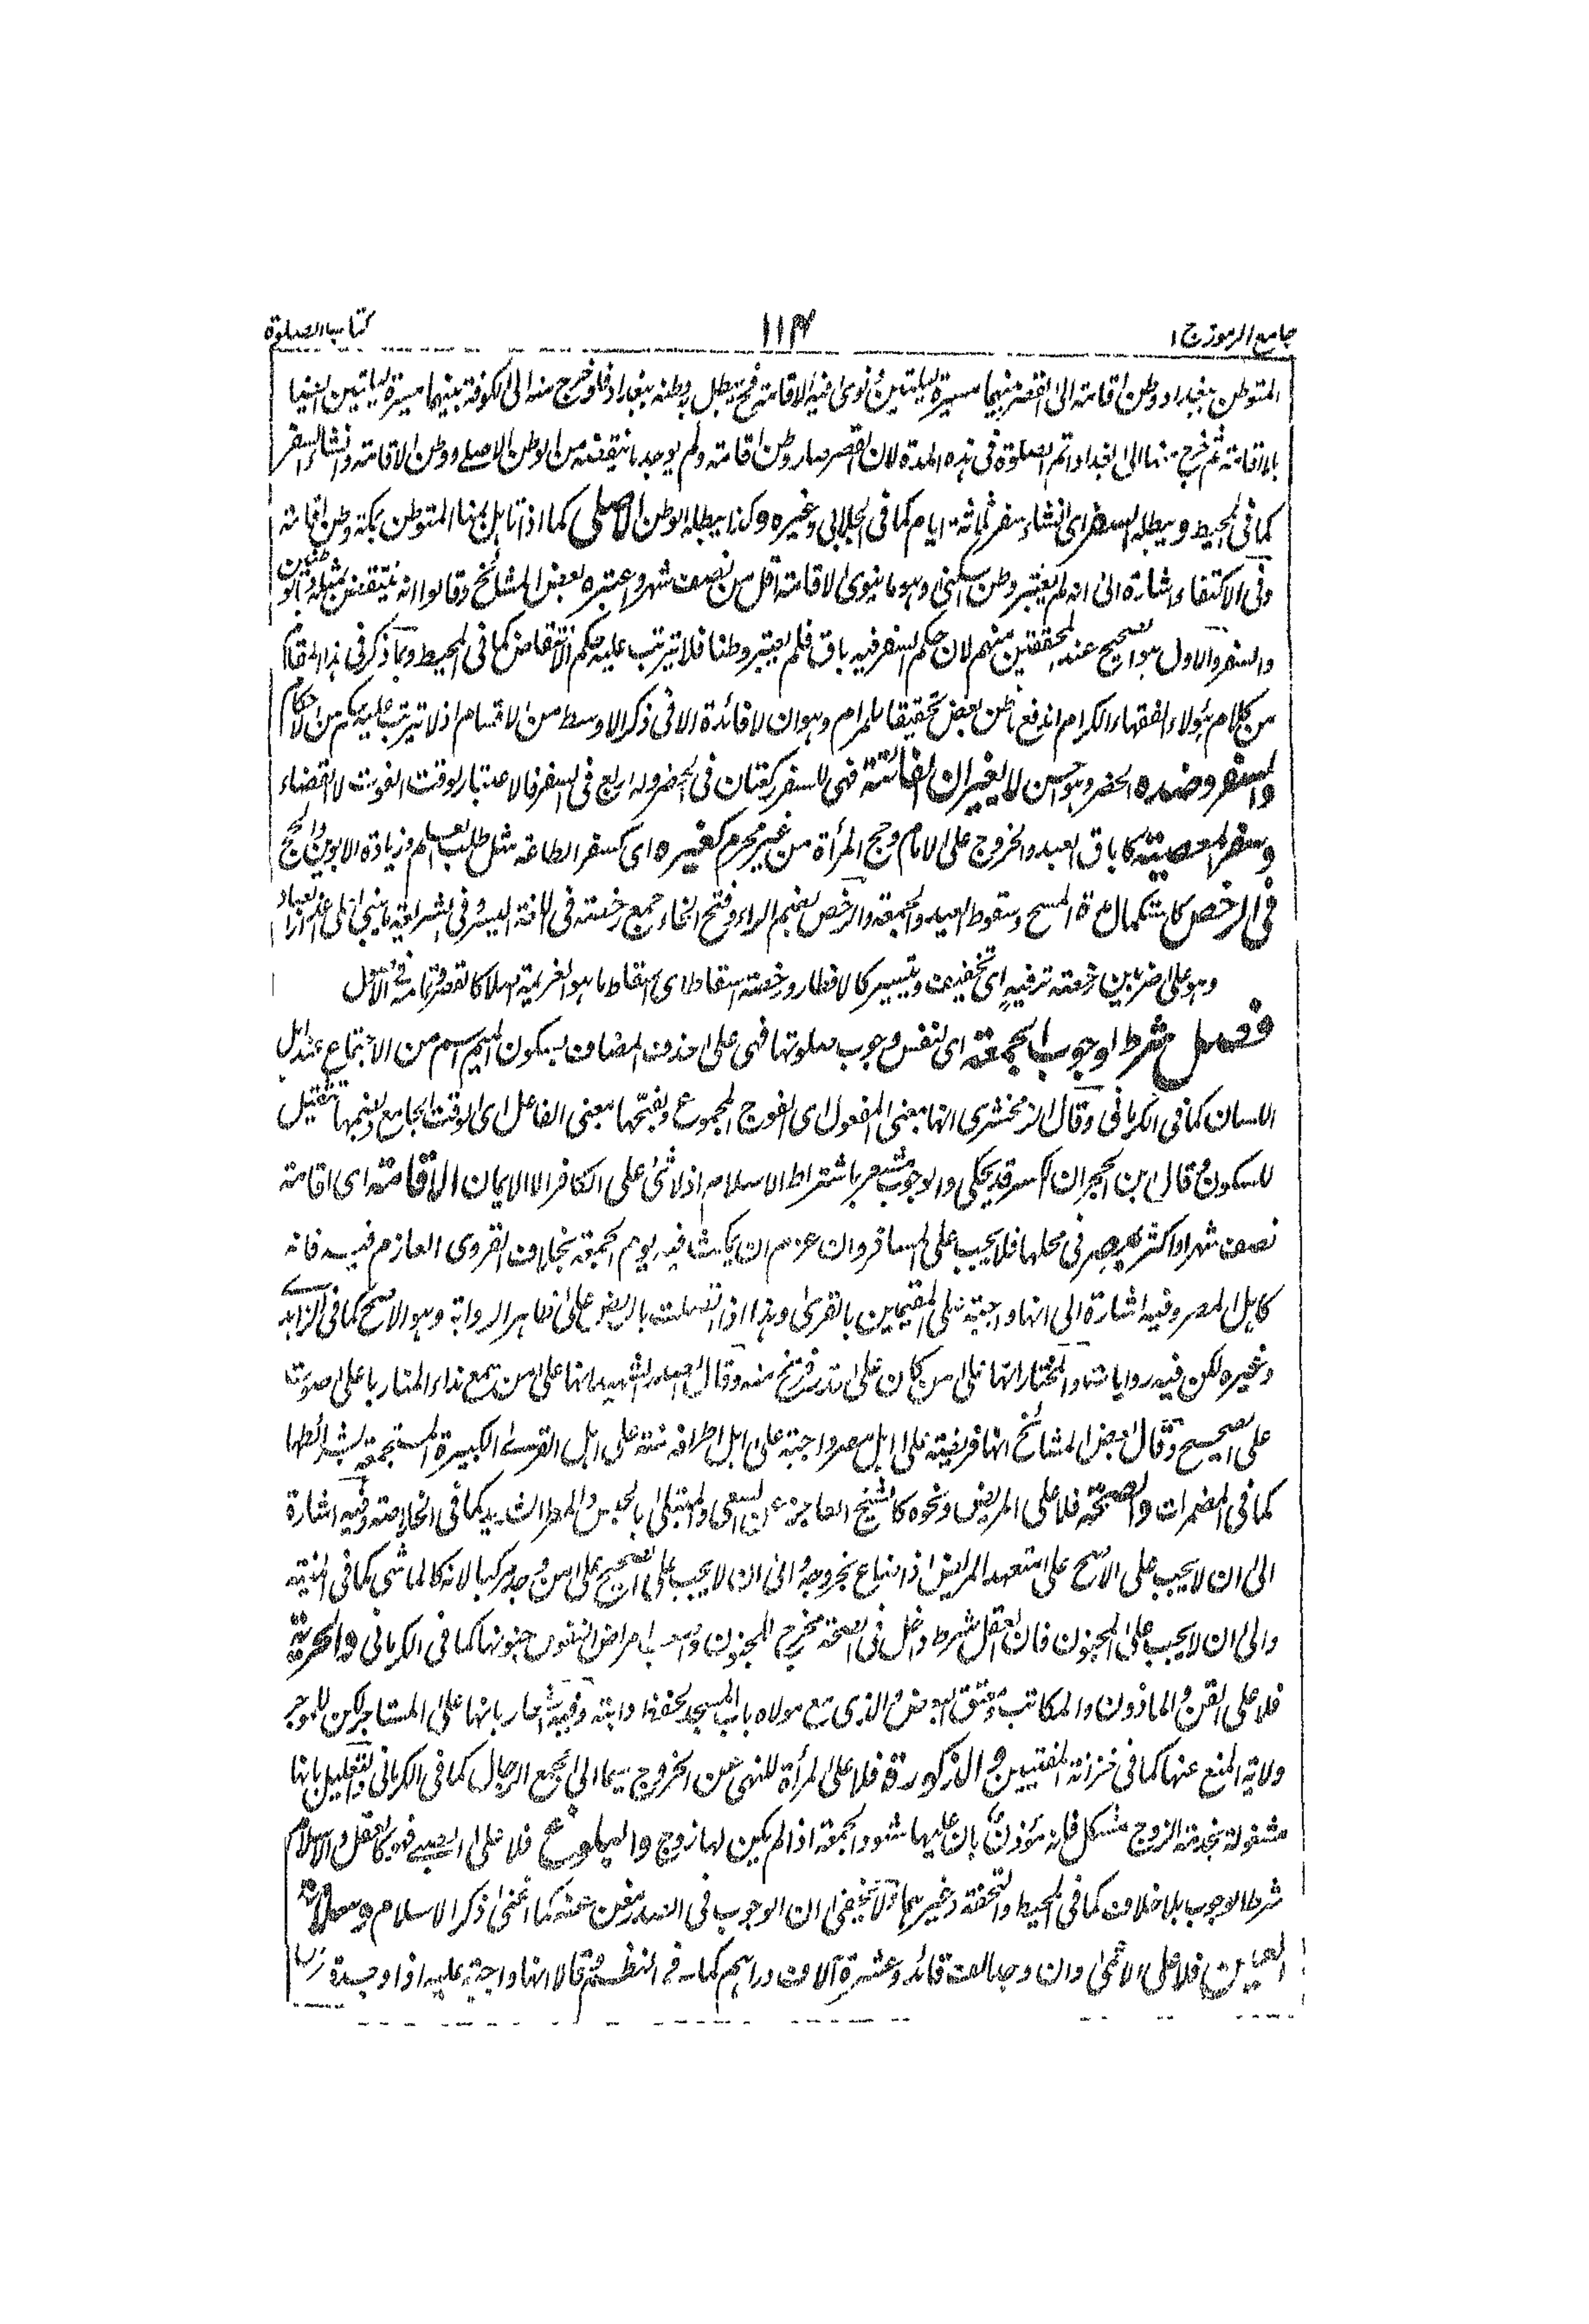 جامع الرموز ج ۱
۱۱۴
كتاب الصلوة
المتوطن ببغداد وطن اقامته الى القصر بينهما مسيرة ليلتين ونوى فيه الاقامة فح يبطل وطنه ببغداد فلو خرج منه الى الكوفة بينهما مسيرة ليلتين ايضا
بالاقامة ثم خرج منها الى بغداد اتم الصلوة فى هذه المدة لان القصر صار وطن اقامته ولم يوجد ما ينقضه من الوطن الاصلے ووطن الاقامة وانشاء السفر
كما فى المحيط ويبطله السفر اى انشاء سفر ثلثة ايام كما فى الجلابى وغيره وكذا يبطله الوطن الاصلى كما اذا تاهل بمنها المتوطن بمكة وطن اقامته
وفى الاكتفاء اشارة الى انه لم يعتبر وطن السكنى وهو ما ينوى الاقامة اقل من نصف شهر واعتبره بعض المشائخ وقالوا انه ينتقض بمثله وبالوطنين
والسفر والاول هو الصحيح عند المحققين منهم لان حكم السفر فيه باق فلم يعتبر وطنا فلا يترتب عليه حكم الانتقاض كما فى المحيط وبما ذكر فى هذا المقام
من كلام هؤلاء الفقهاء الكرام اندفع ما ظن بعض تحقيقا للمرام وهو ان لا فائدة الا فى ذكر الاوسط من الاقسام اذ لا يترتب عليه حكم من الاحكام
والسفر وضده الحضر وهو حسن لا يغيران الفائتة فهى للسفر ركعتان فى الحضر وله اربع فى السفر فالاعتبار لوقت الفوت لا القضاء
وسفر المعصية كاباق العبد والخروج على الامام وحج المرأة من غير محرم كغيره اى كسفر الطاعة مثل طلب العلم وزيارة الابوين والحج
فى الرخص كاستكمال مدة المسح وسقوط العيد والجمعة والرخص بضم الراء وفتح الخاء جمع رخصة فى اللغة اليسر وفى الشريعة ما يبتنى على اعذار العباد
وهو على ضربين رخصة ترفيه اى تخفيف وتيسير كالافطار ورخصة اسقاط اى اسقاط ما هو العزيمة اصلا كالقصر
فصل شرط لوجوب الجمعة اى لنفس وجوب صلوتها فهى على حذف المضاف بسكون الميم اسم من الاجتماع عند اهل
اللسان كما فى الكرمانى وقال الزمخشرى انها بمعنى المفعول اى الفوج المجموع وبفتحها بمعنى الفاعل اى الوقت الجامع وبضمها تثقيل
للسكون وقال ابن الحجر ان الكسر قد يحكى والوجوب مشعر باشتراط الاسلام اذ لا شئ على الكافر الا الايمان الاقامة اى اقامة
نصف شهر او اكثر بمصر فى محلها فلا يجب على المسافر وان عزم ان يمكث فيه يوم الجمعة بخلاف القروى العازم فيه فانه
كاهل المصر وفيه اشارة الى انها واجبة على المقيمين بالقرى وهذا اذا اتصلت بالربض على ظاهر الرواية وهو الاصح كما فى الزاهدے
وغيره لكن فيه روايات والمختار انها على من كان على قدر فرسخ منه وقال الصدر الشهيد انها على من سمع نداء المنار باعلى صوت
على الصحيح وقال بعض المشائخ انها فريضة على اهل مصر واجبة على اهل اطرافه سنة على اهل القرے الكبيرة المستجمعة لشرائطها
كما فى المضمرات والصحة فلا على المريض ونحوه كالشيخ العاجز عن السعى والمبتلى بالحبس والمطر الشديد كما فى الخلاصة وفيه اشارة
الى ان لا يجب على الاصح على متعهد المريض اذا ضاع بخروجه والى ان لا يجب على الصحيح على من وجد مركبا لانه كالماشى كما فى المنية
والى ان لا يجب على المجنون فان العقل شرط دخل فى الصحة مخرج للمجنون واصعب امراض النفوس جنونها كما فى الكرمانى والحرية
فلا على القن والماذون والمكاتب ومعتق البعض والذى مع مولاه باب المسجد لحفظ دابته وفيه اشعار بانها على المستاجر لكن للموجر
ولاية المنع عنها كما فى خزانة المفتيين والذكورة فلا على المرأة للنهى عن الخروج سيما الى مجمع الرجال كما فى الكرمانى والتعليل بانها
مشغولة بخدمة الزوج مشكل فانه مؤذن بان عليها شهود الجمعة اذا لم يكن لها زوج والبلوغ فلا على الصبے فهو كالعقل والاسلام
شرط الوجوب بلا خلاف كما فى المحيط والتحفة وغيرهما ولا يخفى ان الوجوب فى الصدر مغن عنه كما اغنى ذكر الاسلام وسلامة
العينين فلا على الاعمى وان وجد الف قائد وعشرة آلاف دراهم كما فے النظم وقالا انها واجبة عليه اذا وجد